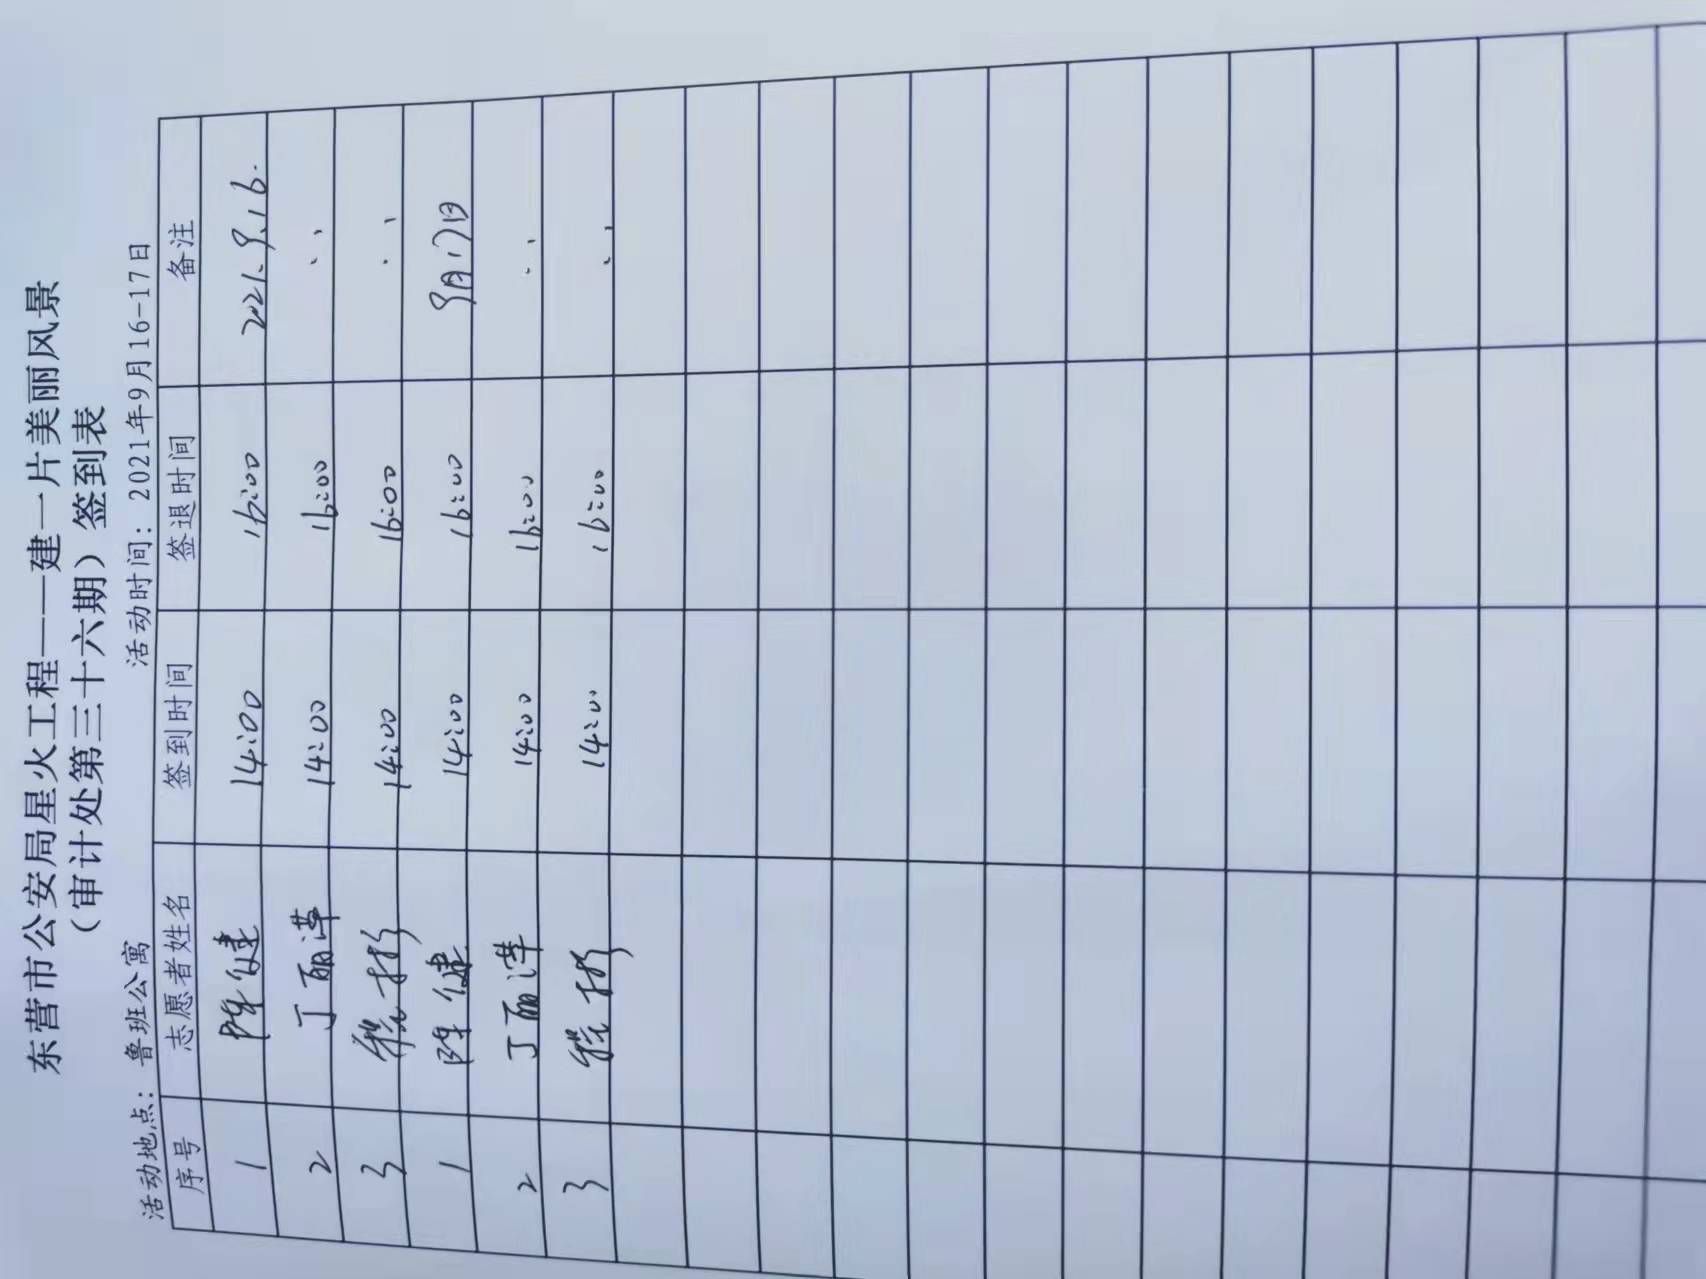 东营市公安局星火工程——建一片美丽风景
（审计处第三十六期）签到表
活动地点： 鲁班公寓 活动时间：2021年9月16-17日
序号 志愿者姓名 签到时间 签退时间 备注
1 陈健 14:00 16:00 2021.9.16.
2 丁丽萍 14:00 16:00 〃
3 14:00 16:00 〃
1 陈健 14:00 16:00 9月17日
2 丁丽萍 14:00 16:00 〃
3 14:00 16:00 〃